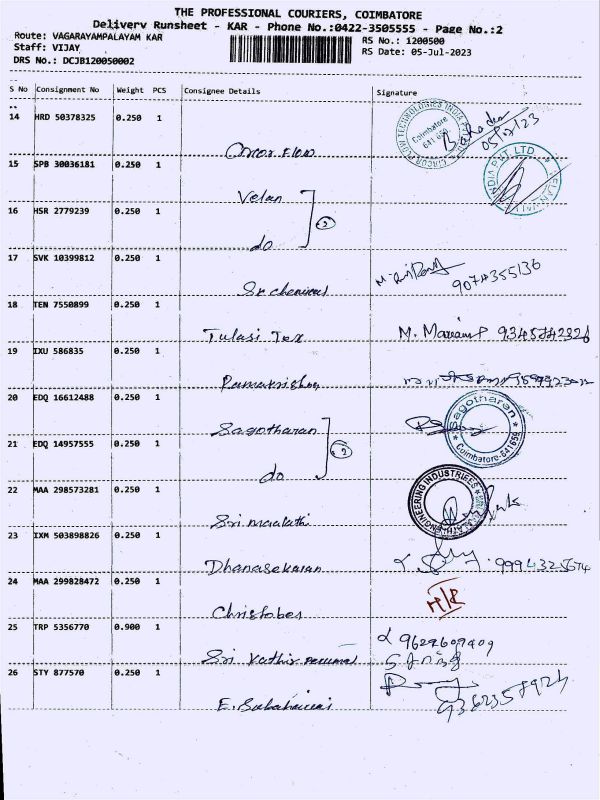 THE PROFESSIONAL COURIERS, COIMBATORE
Delivery Runsheet - KAR - Phone No.:0422-3505555 - Page No.:2
Route: VAGARAYAMPALAYAM KAR
RS No.: 1200500
Staff: VIJAY
RS Date: 05-Jul-2023
DRS No.: DCJB120050002
S No Consignment No Weight PCS Consignee Details Signature
14 HRD 50378325 0.250 1
CIRCOR FLOW TECHNOLOGIES INDIA
Coimbatore
641 659
05/7/23
Circor Flow
15 SPB 30036181 0.250 1
INDIA PVT LTD
Velan
2
16 HSR 2779239 0.250 1
do
17 SVK 10399812 0.250 1
9074355136
Sr chemical
18 TEN 7550899 0.250 1
Tulasi Tex
M. Mariam
19 IXU 586835 0.250 1
Ramakrishna
20 EDQ 16612488 0.250 1
Sagotharan
Coimbatore-641659
Sagotharan
2
21 EDQ 14957555 0.250 1
do
22 MAA 298573281 0.250 1
ENGINEERING INDUSTRIES
Sri malathi
23 IXM 503898826 0.250 1
Dhanasekaran
24 MAA 299828472 0.250 1
Christober
25 TRP 5356770 0.900 1
9629609409
Sri Kathir perumal
26 STY 877570 0.250 1
E.